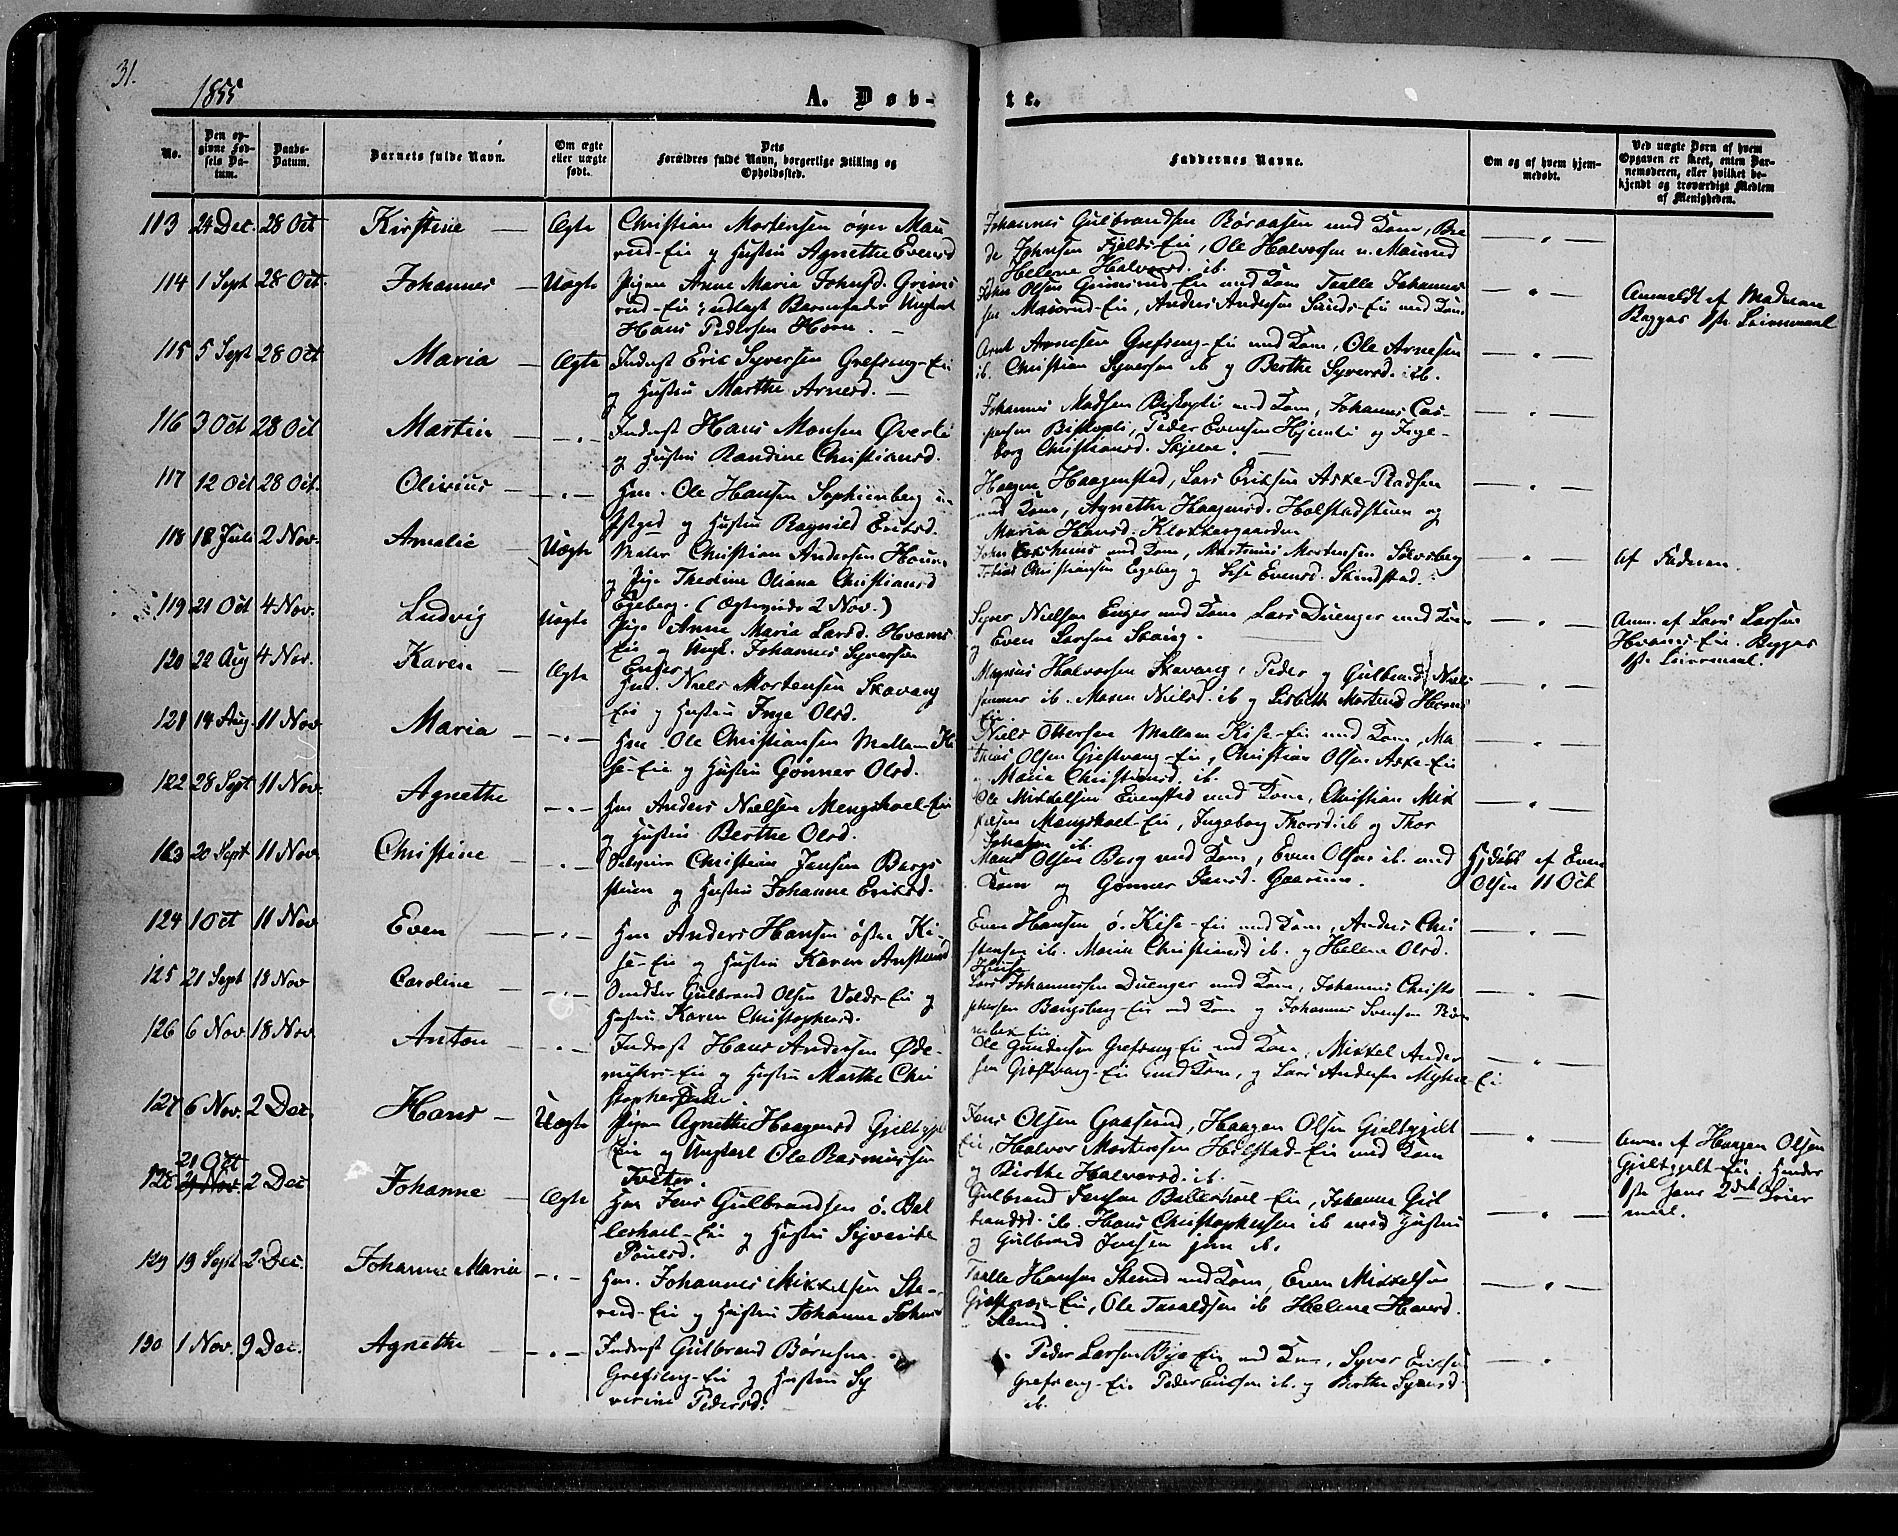 31.
1855
A. Døb-
te.
No.
Den op-
givne Fød-
sels Da-
tum.
Daabs-
Datum.
Barnets fulde Navn.
Om ægte
eller uægte
født.
Dets
Forældres fulde Navn, borgerlige Stilling og
Opholdssted.
Faddernes Navne.
Om og af hvem hjem-
medøbt.
Ved uægte Børn af hvem
Opgaven er skeet, enten Bar-
nemoderen, eller hvilket be-
kjendt og troværdigt Medlem
af Menigheden.
113 24 Dec. 28 Oct Kirstine — Ægte
Christian Mortensen
Eie og Hustru Agnethe Evensd
Johannes Gulbrandsen Røraasen med Kone
Johnsen Fjelds-Eie, Ole Halvorsen
og Helene Halvorsd. ib.
114 1 Sept 28 Oct. Johannes — Uægte
Pigen Anne Maria Johnsd. Grims
rud-Eie; udlagt Barnefader Ungkarl
Hans Pedersen Horn. —
Olsen Grimsrud-Eie med Kone Taalle Johannes
sen Maurud-Eie, Anders Andersen Sunds-Eie med Kone
Anmeldt af Madmor
Begges 1ste Leiermaal
115 5 Sept 28 Oct Maria — Ægte
Inderst Eric Syversen Grefseng-Eie
og Hustru Marthe Arnesd. —
Arnt Arnesen Grefseng-Eie med Kone, Ole Arnesen
ib. Christian Syversen ib og Berthe Syversd. ib.
116 3 Oct 28 Oct Martin — " —
Inderst Hans Monsen Øverli
og Hustru Randine Christiansd.
Johannes Madsen Biskopli med Kone, Johannes Cas-
persen Biskopli, Peder Evensen Hjemli og Inge-
borg Christiansd. Skjelve.
117 12 Oct 28 Oct. Olivius — " —
Hm. Ole Hansen Sophienberg
og Hustru Ragnild Eriksd.
Haagen Haagenstad, Lars Eriksen Aske-Pladsen
med Kone, Agnethe Haagensd. Holstadstuen og
Maria Hansd. Klokkergaarden
118 18 Juli 2 Nov. Amalie — Uægte
Maler Christian Andersen
og Pige Theoline Oliana Christiansd
Egeberg. (Ægteviede 2 Nov.)
med Kone, Martinus Mortensen Sølvsberg
Tobias Christiansen Egeberg og Lise Evensd. Skindstad.
Af Faderen.
119 21 Oct 4 Nov. Ludvig Uægte
Pige Anne Maria Larsd. Hvams-
Eie og Ungk. Johannes Syversen
Enger
Syver Nielsen Enger med Kone Lars Duenger med Kone
og Even Larsen Skaug.
Anm. af Lars Larsen
Hvams-Eie. Begges
1ste Leiermaal.
120 22 Aug 4 Nov. Karen — Ægte
Hm. Niels Mortensen Skavang
Eie og Hustru Inge Olsd.
Magnus Halvorsen Skavang, Peder og Gulbrand Niels
sønner ib. Maren Nielsd. ib og Lisbeth Mortensd Hvams
Eie.
121 14 Aug. 11 Nov Maria — " —
Hm. Ole Christiansen Mellem Ki
se-Eie og Hustru Gønner Olsd.
Niels Ottersen Mellem Kise-Eie med Kone, Ma
thias Olsen Gjestvang-Eie, Christian Olsen Aske-Eie
Maria Christiansd. ib.
122 28 Sept 11 Nov. Agnethe — " —
Hm Anders Nielsen Mengshoel-Eie
og Hustru Berthe Olsd.
Ole Mikkelsen Evenstad med Kone, Christian Mik
kelsen Mengshoel-Eie, Ingeborg Thorsd ib og Thor
Johnsen ib.
123 20 Sept 11 Nov. Christine — " —
Christian Jensen Bergs
stuen og Hustru Johanne Eriksd.
Mons Olsen Berg med Kone, Even Olsen ib. med
Kone og Gønner Jensd. Gaarum.
Hjdøbt af Even
Olsen 11 Oct
124 1 Oct 11 Nov Even — " —
Hm Anders Hansen østre Ki-
se-Eie og Hustru Karen Anstensd
Even Hansen ø. Kise-Eie med Kone, Anders Chri
stensen ib. Maria Christiansd ib. og Helene Olsd.
125 21 Sept 18 Nov Caroline — " —
Snedker Gulbrand Olsen Volds-Eie og
Hustru Karen Christophersd.
Lars Johannessen Duenger med Kone, Johannes Christo
phersen Bangsberg-Eie med Kone og Johannes Svensen
126 6 Nov. 18 Nov. Anton — " —
Inderst Hans Andersen Øde-
Eie og Hustru Marthe Chri
stophersd.
Ole Gundersen Grefseng-Eie med Kone, Mikkel Ander
sen Gjestvang-Eie med Kone, og Lars Andersen Eie
127 6 Nov. 2 Dec. Hans — Uægte
Pigen Agnethe Haagensd Gjeltgjel
Eie og Ungkarl Ole Rasmussen
Tveter.
Jens Olsen Gaasrud, Haagen Olsen Gjeltgjelt
Eie, Halvor Mortensen Holstad-Eie med Kone
og Birthe Halvorsd. ib.
Anm. af Haagen Olsen
Gjeltgjelt-Eie. Hendes
1ste hans 2det Leier
maal.
21 Oct
128 2 Dec Johanne — Ægte
Hm Jens Gulbrandsen ø. Bal
lerhoel-Eie og Hustru Syverine
Poulsd.
Gulbrand Jensen Ballerhoel-Eie, Johanne Gul
brandsd. ib. Hans Christophersen ib med Hustru
og Gulbrand Jensen jun ib.
129 19 Sept 2 Dec. Johanne Maria — " —
Hm. Johannes Mikkelsen Ste-
rud-Eie og Hustru Johanne Johnsd
Taalle Hansen Sterud med Kone, Even Mikkelsen
Gjestvang-Eie, Ole Taraldsen ib Helene Hansd.
130 1 Nov. 9 Dec. Agnethe — " —
Inderst Gulbrand Børresen
Grefseng-Eie og Hustru Sy
verine Pedersd.
Peder Larsen Bye-Eie med Kone, Syver Eriksen
Grefseng-Eie Peder Eriksen ib. og Berthe Syversd.
ib.